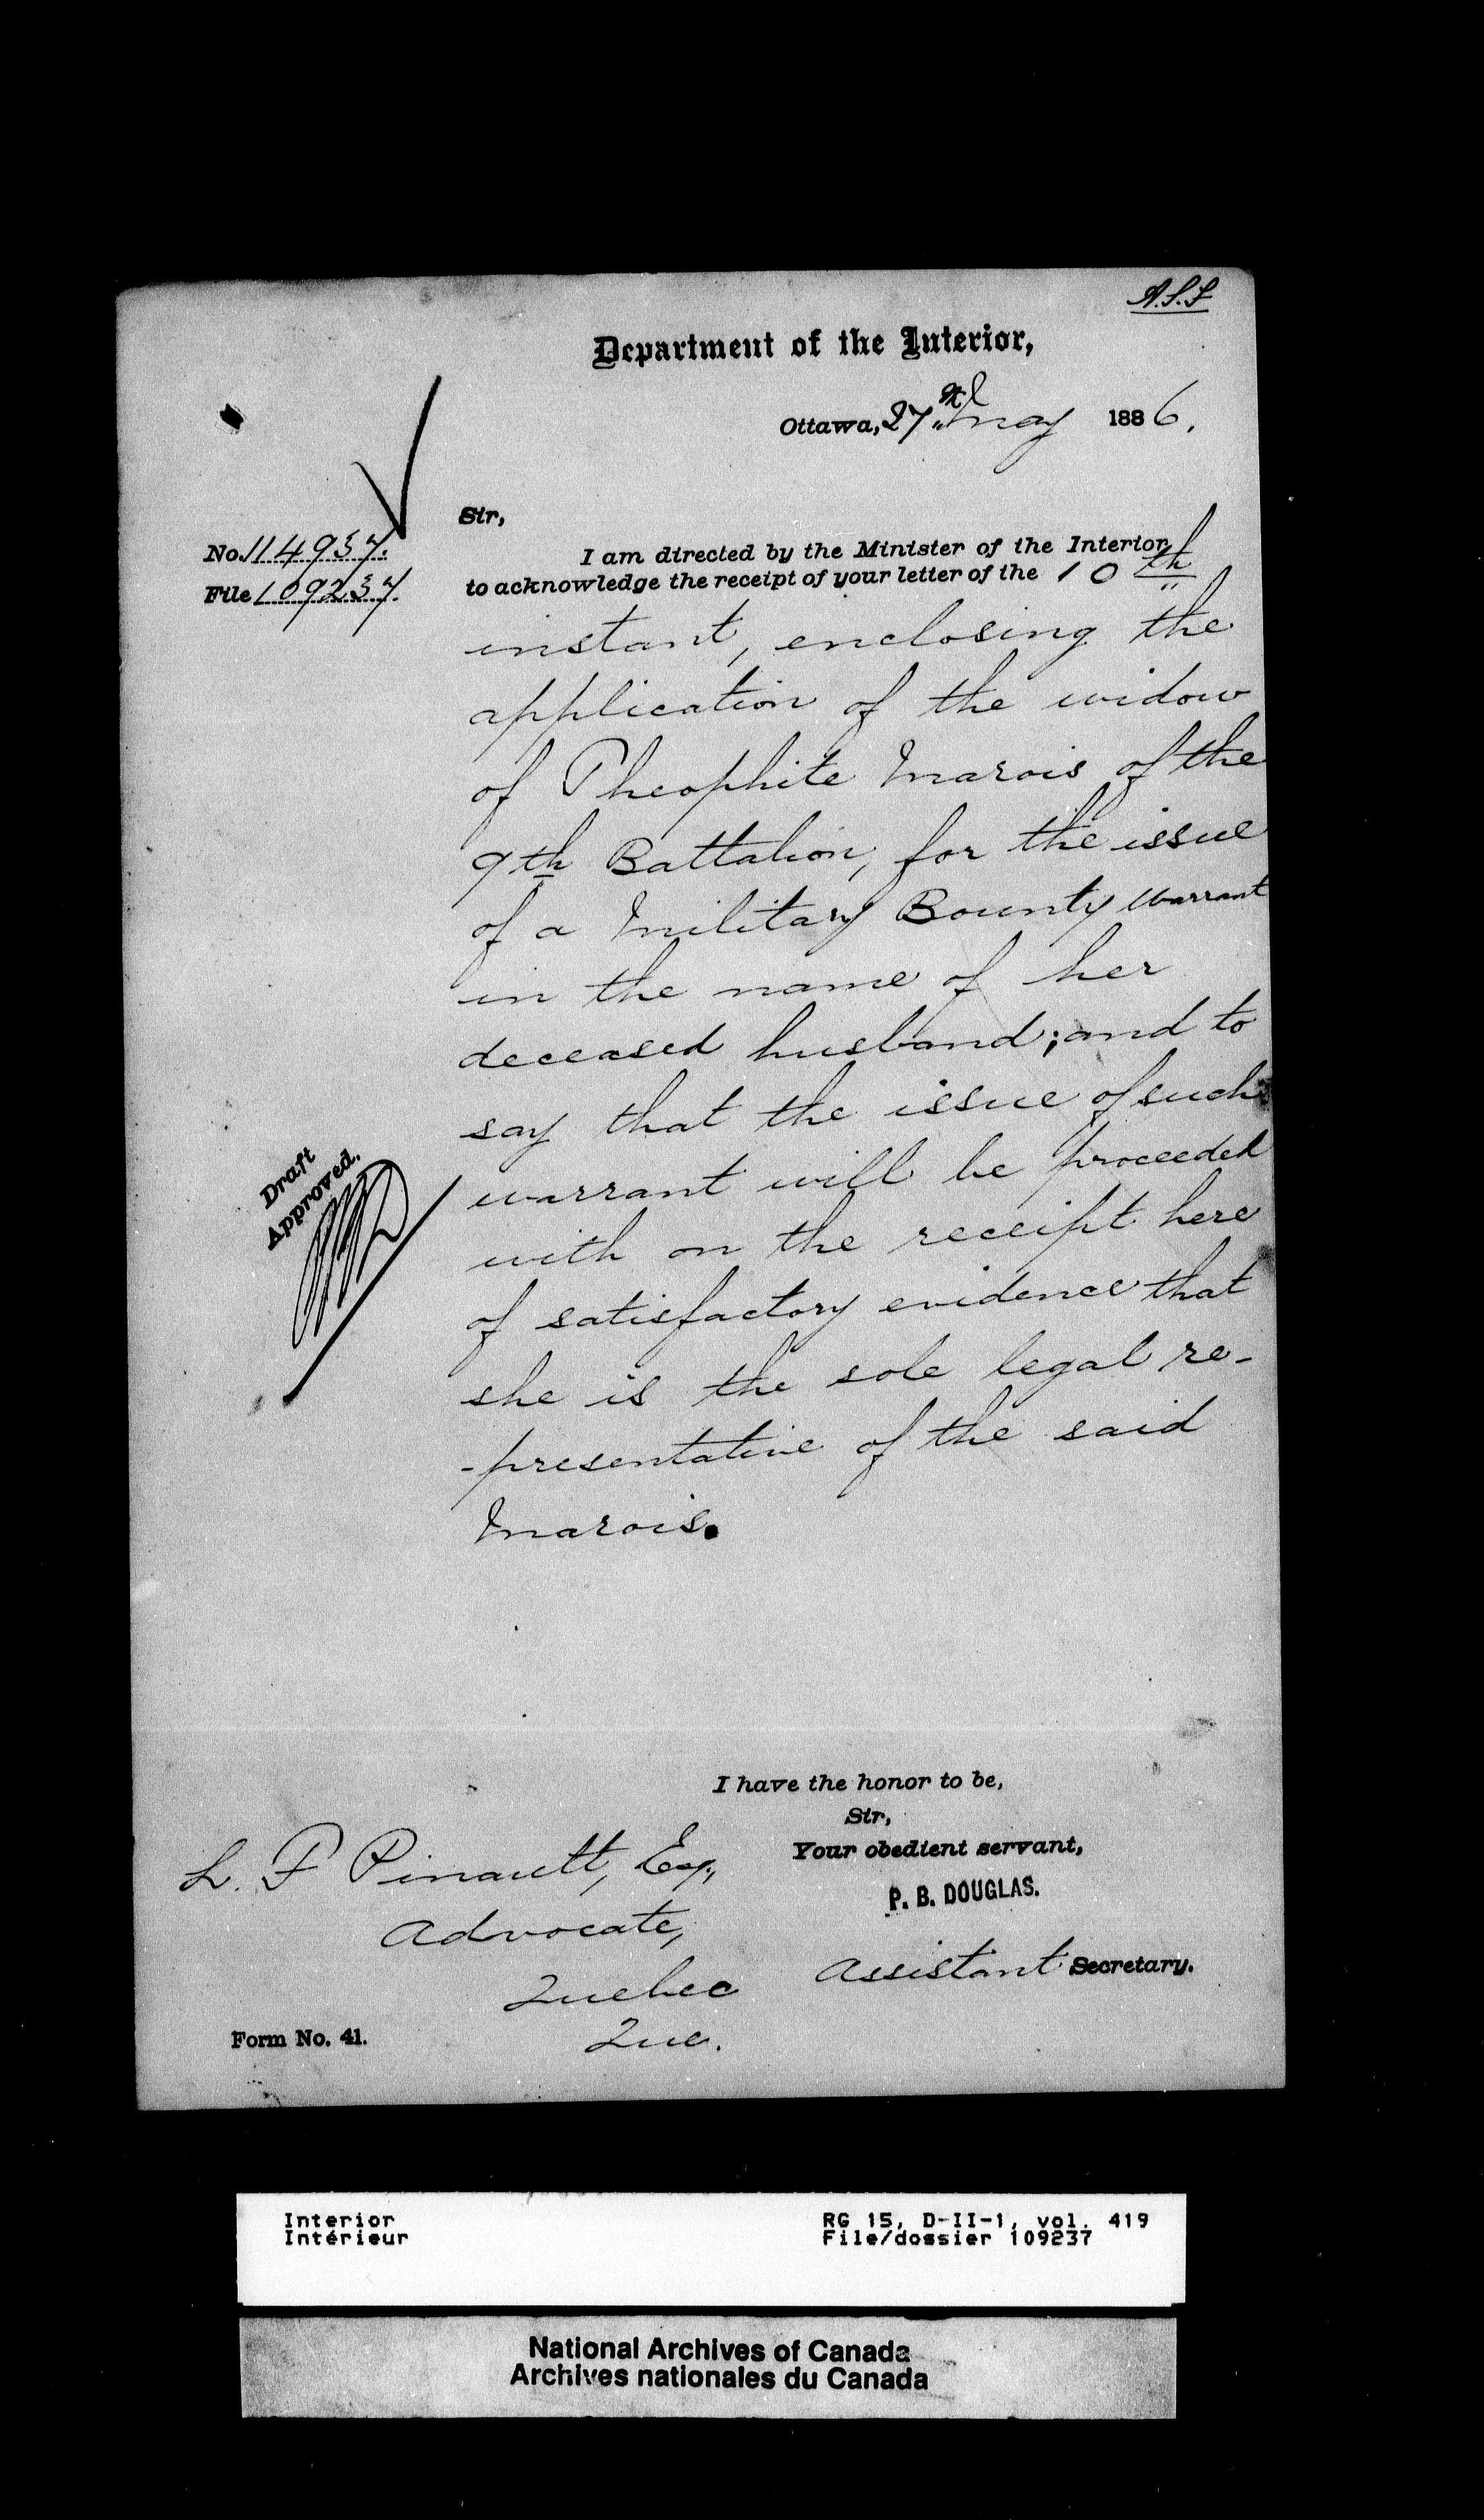 A.S.S
Department of the Interior,
Ottawa, 27th May 1886.
Sir,
No. 114937.
File 109237.
I am directed by the Minister of the Interior
to acknowledge the receipt of your letter of the 10th
instant, enclosing the
application of the widow
of Theophite Marois of the
9th Battalion, for the issue
of a Military Bounty Warrant
in the name of her
deceased husband; and to
say that the issue of such
warrant will be proceeded
with on the receipt here
of satisfactory evidence that
she is the sole legal re-
-presentative of the said
Marois.
Draft
Approved.
I have the honor to be,
Sir,
Your obedient servant,
P. B. DOUGLAS.
Assistant Secretary.
L. F Pinault, Esq.,
Advocate,
Quebec
Que.
Form No. 41.
Interior
Intérieur
RG 15, D-II-1, vol. 419
File/dossier 109237
National Archives of Canada
Archives nationales du Canada